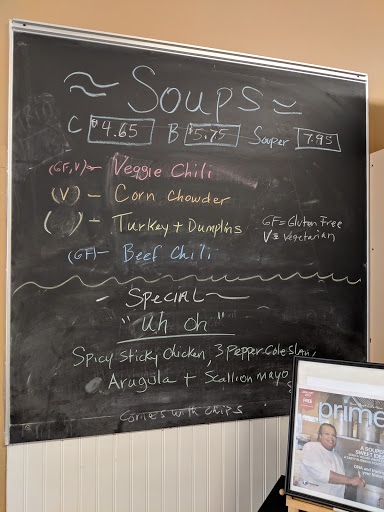 Soups
C $4.65 B $5.75 Souper 7.95
(GF, V) ~ Veggie Chili
(V) - Corn Chowder
( ) - Turkey + Dumplins
GF = Gluten Free
V = Vegetarian
(GF) - Beef Chili
Special ~
"Uh oh"
Spicy Sticky Chicken, 3 Pepper Coleslaw,
Arugula + Scallion mayo
Comes with chips
prime
A SOUPER
SWEET